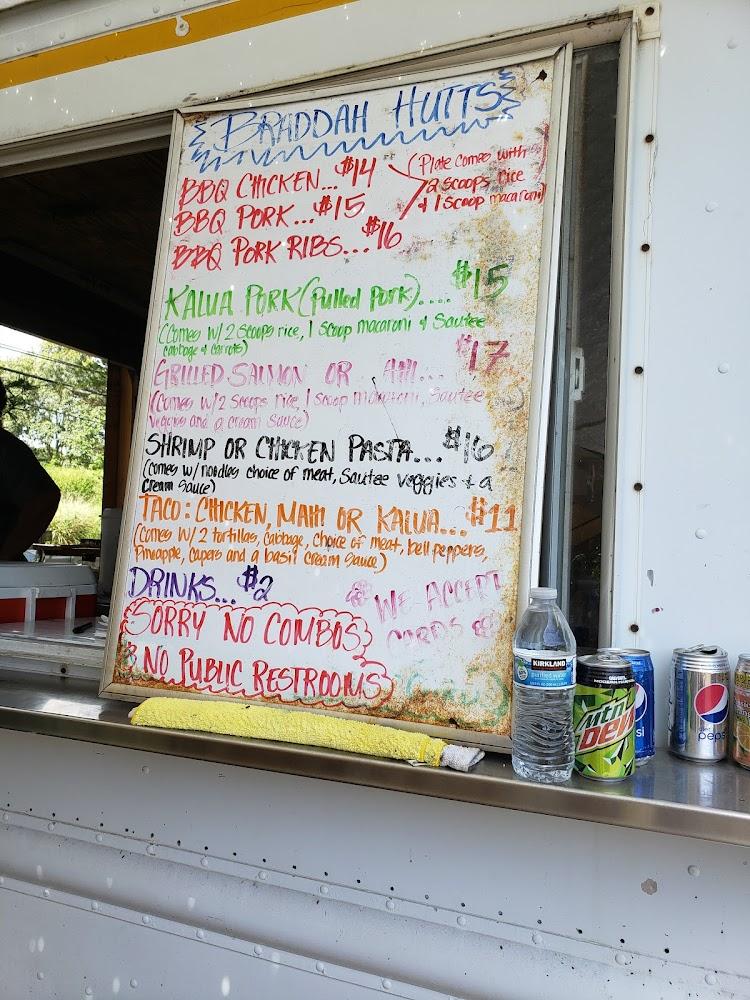 BRADDAH HUTTS
BBQ CHICKEN...$14
BBQ PORK...$15
BBQ PORK RIBS...$16
(Plate comes with
2 scoops rice
+ 1 scoop macaroni)
KALUA PORK (Pulled Pork)....$15
(Comes W/ 2 Scoops rice, 1 scoop macaroni & Sautee
cabbage & carrots)
GRILLED SALMON OR AHI...$17
(Comes W/ 2 Scoops rice, 1 scoop macaroni, Sautee
veggies and a cream sauce)
SHRIMP OR CHICKEN PASTA...$16
(comes w/ noodles choice of meat, Sautee veggies & a
cream sauce)
TACO: CHICKEN, MAHI OR KALUA...$11
(Comes W/ 2 tortillas, cabbage, choice of meat, bell peppers,
Pineapple, capers and a basil cream sauce)
DRINKS...$2
WE ACCEPT
CARDS
SORRY NO COMBOS
& NO PUBLIC RESTROOMS
KIRKLAND
purified water
Mtn
DEW
si
pepsi